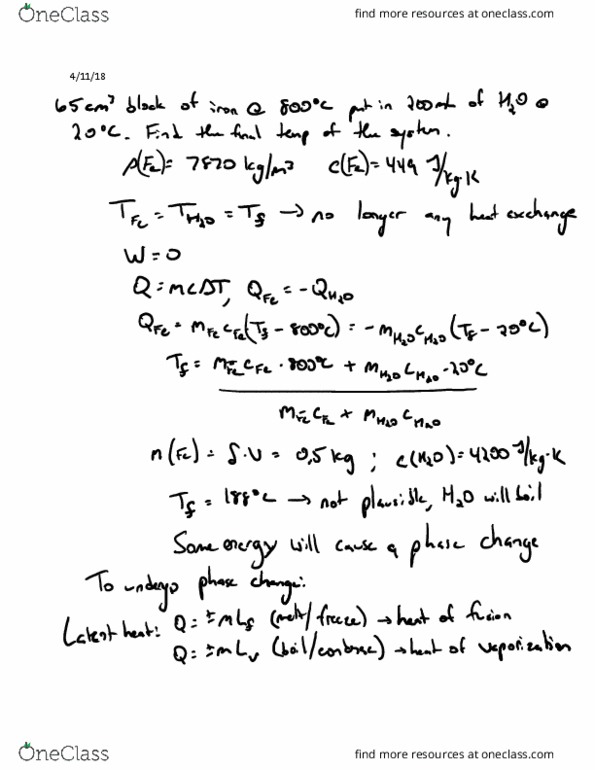 OneClass
find more resources at oneclass.com
4/11/18
65cm³ block of iron @ 800°C put in 200mL of H₂O @
20°C. Find the final temp of the system.
ρ(Fe)= 7870 kg/m³ c(Fe)=449 J/kg·K
T_Fe = T_H₂O = T_f → no longer any heat exchange
W=0
Q=mcΔT, Q_Fe = -Q_H₂O
Q_Fe = m_Fe c_Fe (T_f - 800°C) = -m_H₂O c_H₂O (T_f - 20°C)
T_f = m_Fe c_Fe · 800°C + m_H₂O c_H₂O · 20°C
m_Fe c_Fe + m_H₂O c_H₂O
m(Fe) = ρ·V = 0,5 kg ; c(H₂O)=4200 J/kg·K
T_f = 188°C → not plausible, H₂O will boil
Some energy will cause a phase change
To undergo phase change:
Latent heat: Q= ±mL_f (melt/freeze) → heat of fusion
Q= ±mL_v (boil/condense) → heat of vaporization
OneClass
find more resources at oneclass.com